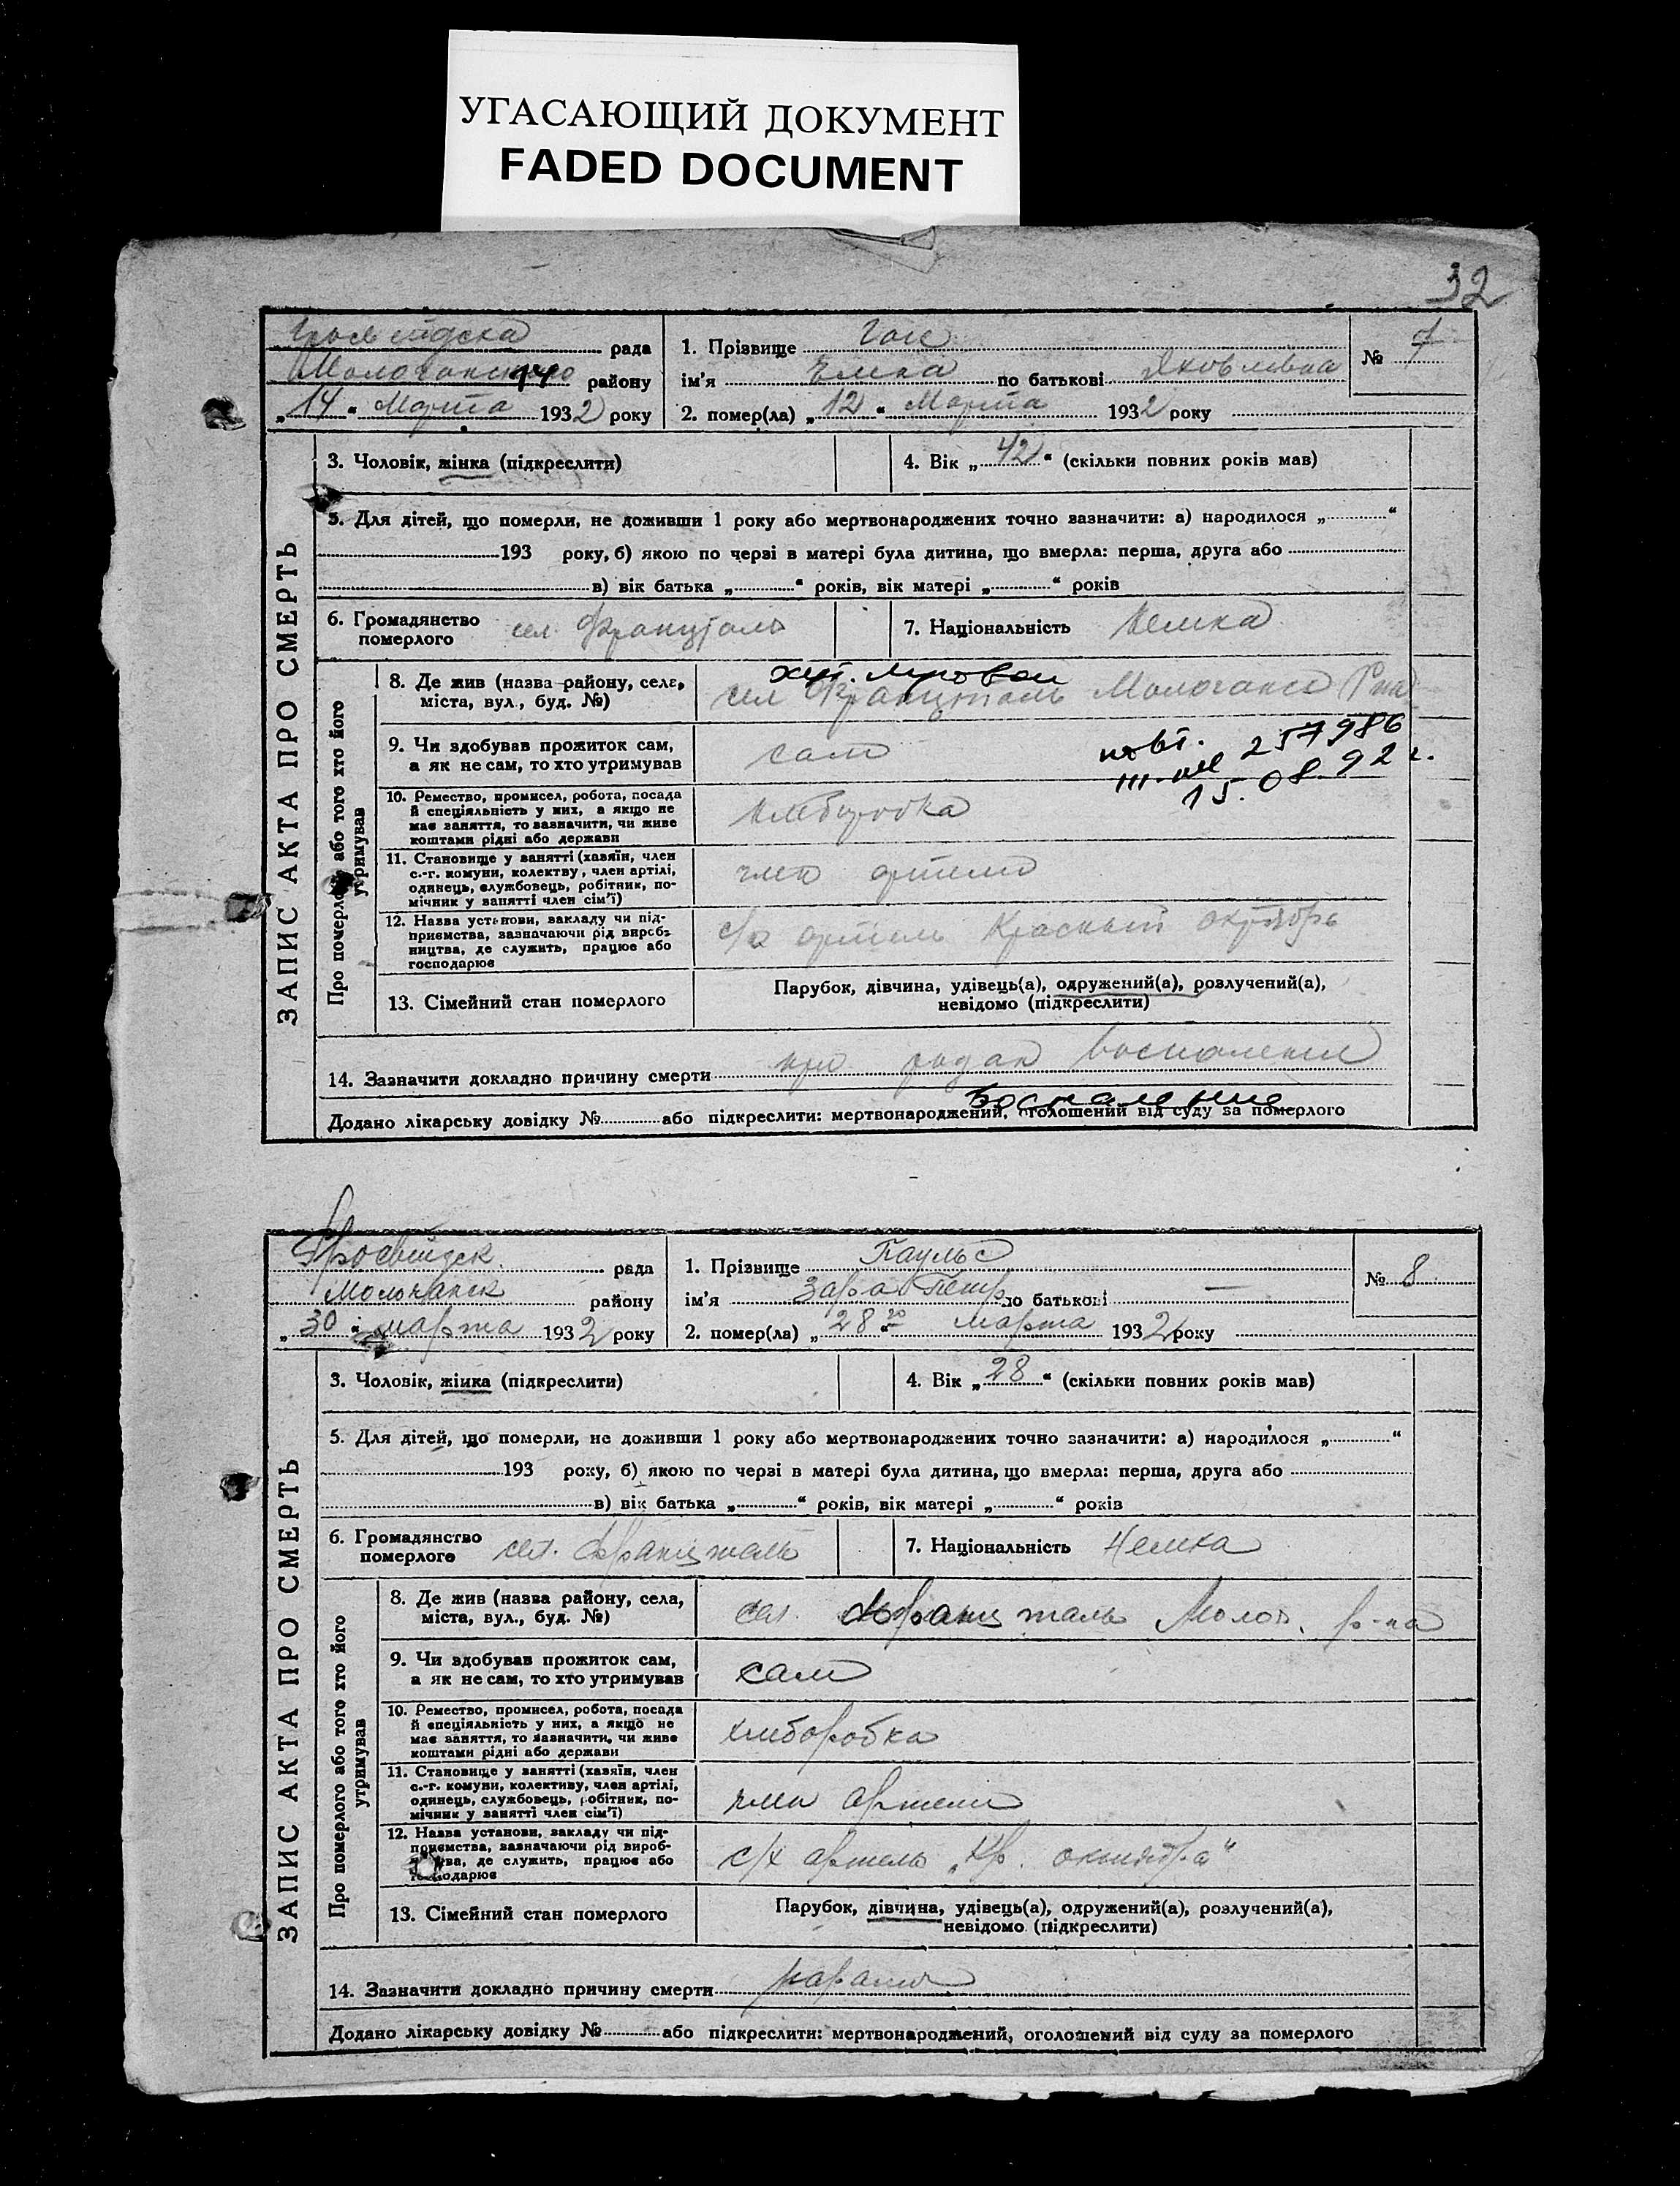 УГАСАЮЩИЙ ДОКУМЕНТ
FADED DOCUMENT
32
ЗАПИС АКТА ПРО СМЕРТЬ
рада
Молочанского району
„14“ Марта 1932 року
1. Прізвище
ім’я по батькові Яковлівна
№ 7
2. помер(ла) „12“ Марта 1932 року
3. Чоловік, жінка (підкреслити)
4. Вік „42“ (скільки повних років мав)
5. Для дітей, що померли, не доживши 1 року або мертвонароджених точно зазначити: а) народилося „ “
193 року, б) якою по черзі в матері була дитина, що вмерла: перша, друга або
в) вік батька „ “ років, вік матері „ “ років
6. Громадянство померлого сел. Францталь
7. Національність Немка
Про померлого або того хто його утримував
8. Де жив (назва району, села,
міста, вул., буд. №)
сел Францталь Молочанск Р-на
9. Чи здобував прожиток сам,
а як не сам, то хто утримував
сам
повт. 257986
15.08.92 г.
10. Ремество, промисел, робота, посада
й спеціяльність у них, а якщо не
має заняття, то зазначити, чи живе
коштами рідні або держави
хліборобка
11. Становище у занятті (хазяїн, член
с.-г. комуни, колектву, член артілі,
одинець, службовець, робітник, по-
мічник у занятті член сім’ї)
член артели
12. Назва установи, закладу чи під-
приємства, зазначаючи рід вироб-
ництва, де служить, працює або
господарює
с/х артель Красный октябрь
13. Сімейний стан померлого
Парубок, дівчина, удівець(а), одружений(а), розлучений(а),
невідомо (підкреслити)
14. Зазначити докладно причину смерти при родах воспаление
Воспаление
Додано лікарську довідку № або підкреслити: мертвонароджений, оголошений від суду за померлого
ЗАПИС АКТА ПРО СМЕРТЬ
рада
Молочанск району
„30“ марта 1932 року
1. Прізвище Паульс
ім’я Зара Петр по батькові —
№ 8
2. помер(ла) „28го“ марта 1932 року
3. Чоловік, жінка (підкреслити)
4. Вік „28“ (скільки повних років мав)
5. Для дітей, що померли, не доживши 1 року або мертвонароджених точно зазначити: а) народилося „ “
193 року, б) якою по черзі в матері була дитина, що вмерла: перша, друга або
в) вік батька „ “ років, вік матері „ “ років
6. Громадянство померлого сел. Францталь
7. Національність Немка
Про померлого або того хто його утримував
8. Де жив (назва району, села,
міста, вул., буд. №)
сел. Францталь Молоч. р-на
9. Чи здобував прожиток сам,
а як не сам, то хто утримував
сам
10. Ремество, промисел, робота, посада
й спеціяльність у них, а якщо не
має заняття, то зазначити, чи живе
коштами рідні або держави
хлиборобка
11. Становище у занятті (хазяїн, член
с.-г. комуни, колективу, член артілі,
одинець, службовець, робітник, по-
мічник у занятті член сім’ї)
член артели
12. Назва установи, закладу чи під-
приємства, зазначаючи рід вироб-
ництва, де служить, працює або
господарює
с/х артель „Кр. октября“
13. Сімейний стан померлого
Парубок, дівчина, удівець(а), одружений(а), розлучений(а),
невідомо (підкреслити)
14. Зазначити докладно причину смерти
Додано лікарську довідку № або підкреслити: мертвонароджений, оголошений від суду за померлого